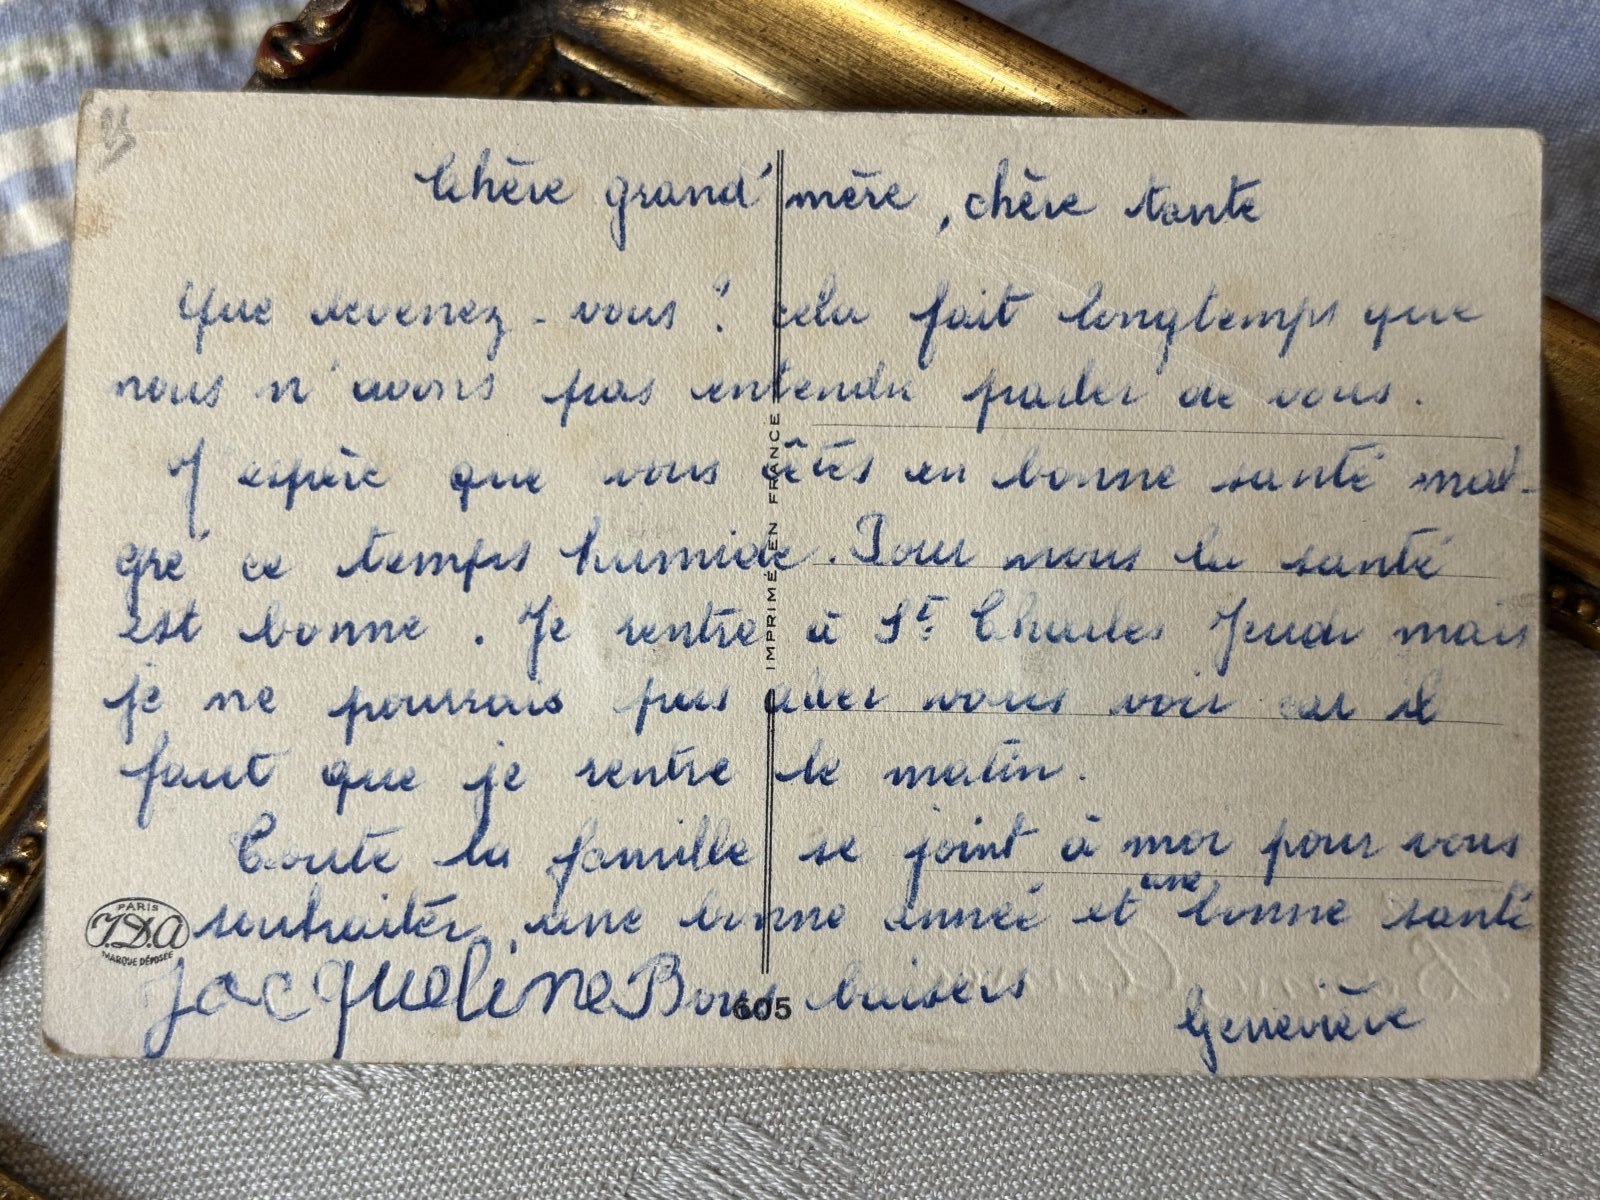 Chère grand'mère, chère tante
Que devenez-vous ? cela fait longtemps que
nous n'avons pas entendu parler de vous.
J'espère que vous êtês en bonne santé mal-
gré ce temps humide. Pour nous la santé
est bonne. Je rentre à St Charles Jeudi mais
je ne pourrais pas aller vous voir car il
faut que je rentre le matin.
Toute la famille se joint à moi pour vous
une
souhaiter une bonne année et bonne santé
Jacqueline Bons baisers
Geneviève
IMPRIMÉ EN FRANCE
PARIS
J.D.A
MARQUE DÉPOSÉE
605
Bonne Année